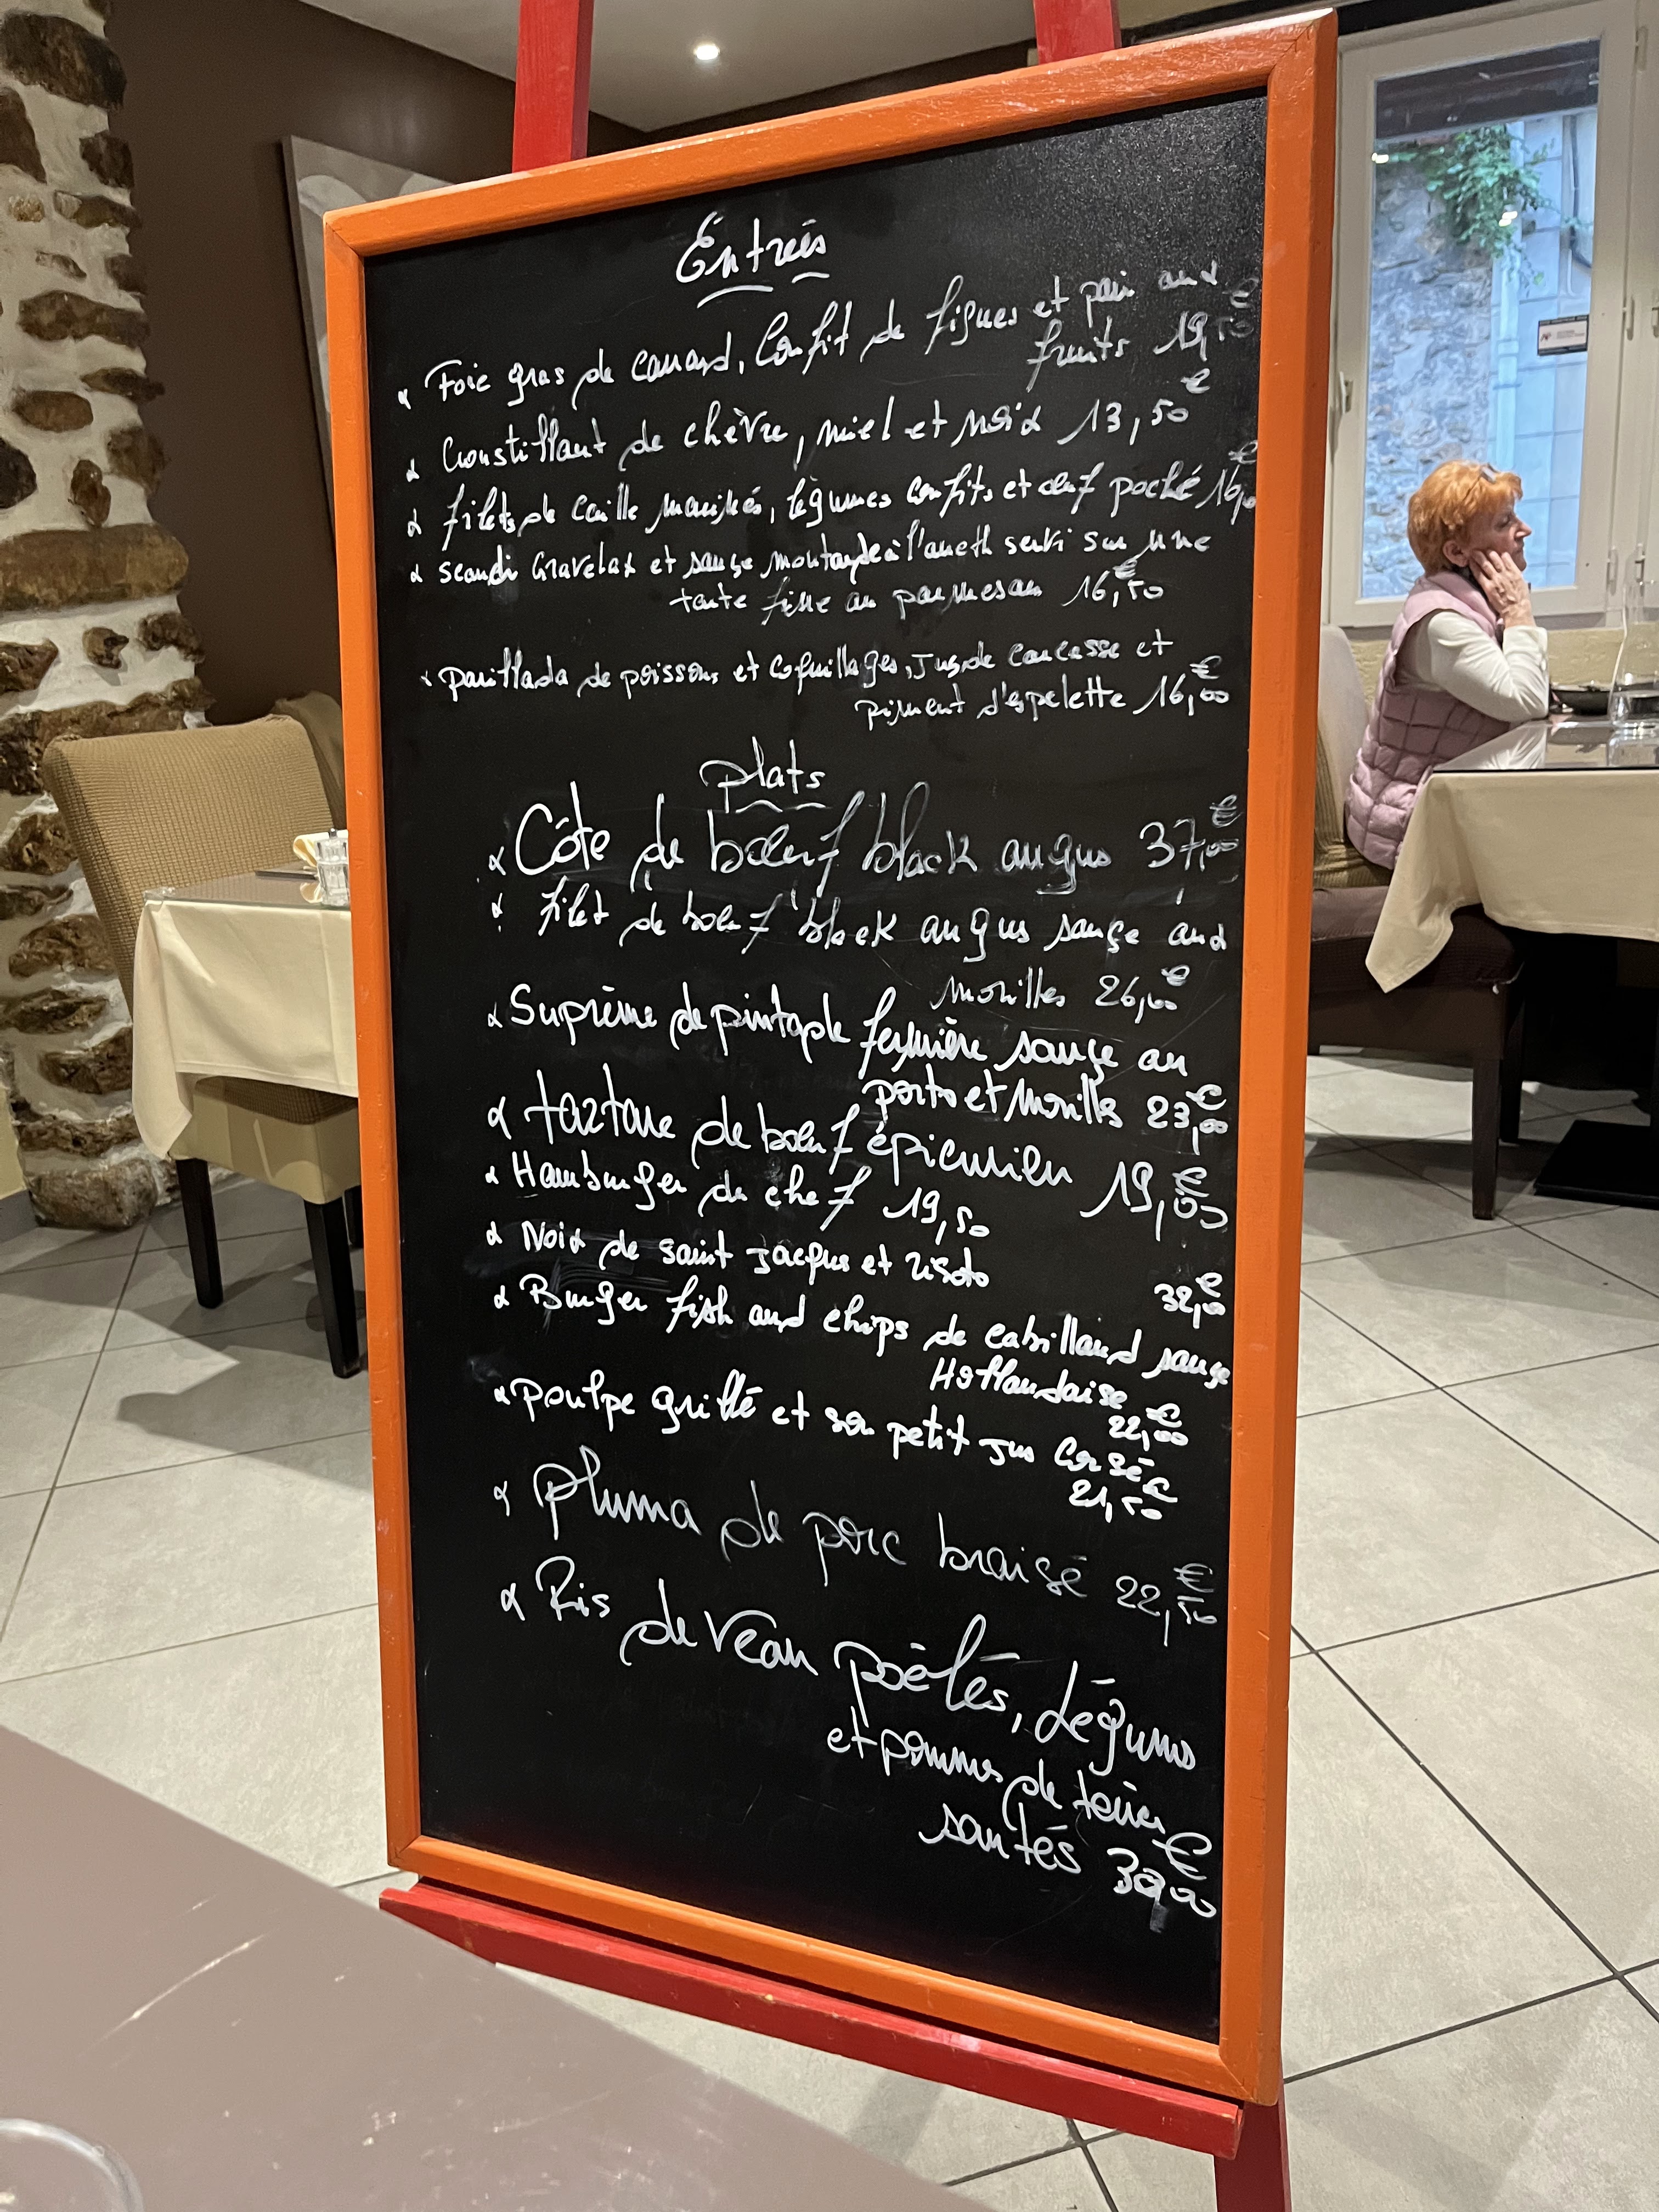 Entrées
Foie gras de canard, Confit de figues et pain aux
fruits 19,50 €
Croustillant de chèvre, miel et noix 13,50 €
filets de caille marinés, légumes confits et œuf poché 16,00 €
Scandi Gravelax et sauçe moutarde à l'aneth servi sur une
tarte fine au parmesan 16,50 €
parillada de poissons et coquillages, jus de carcasse et
piment d'espelette 16,00 €
plats
Côte de bœuf black angus 37,00 €
Filet de bœuf black angus sauçe aux
morilles 26,00 €
Suprême de pintade fermière sauçe au
porto et morilles 23,00 €
tartare de bœuf épicurien 19,00 €
Hamburger du chef 19,50
Noix de saint jacques et risoto
32,00 €
Burger fish and chips de cabillaud sauçe
Hollandaise
22,00 €
poulpe grillé et son petit jus Corsé
21,50 €
Pluma de porc braisé 22,50 €
Ris de veau poêlés, légumes
et pommes de terres
sautés €